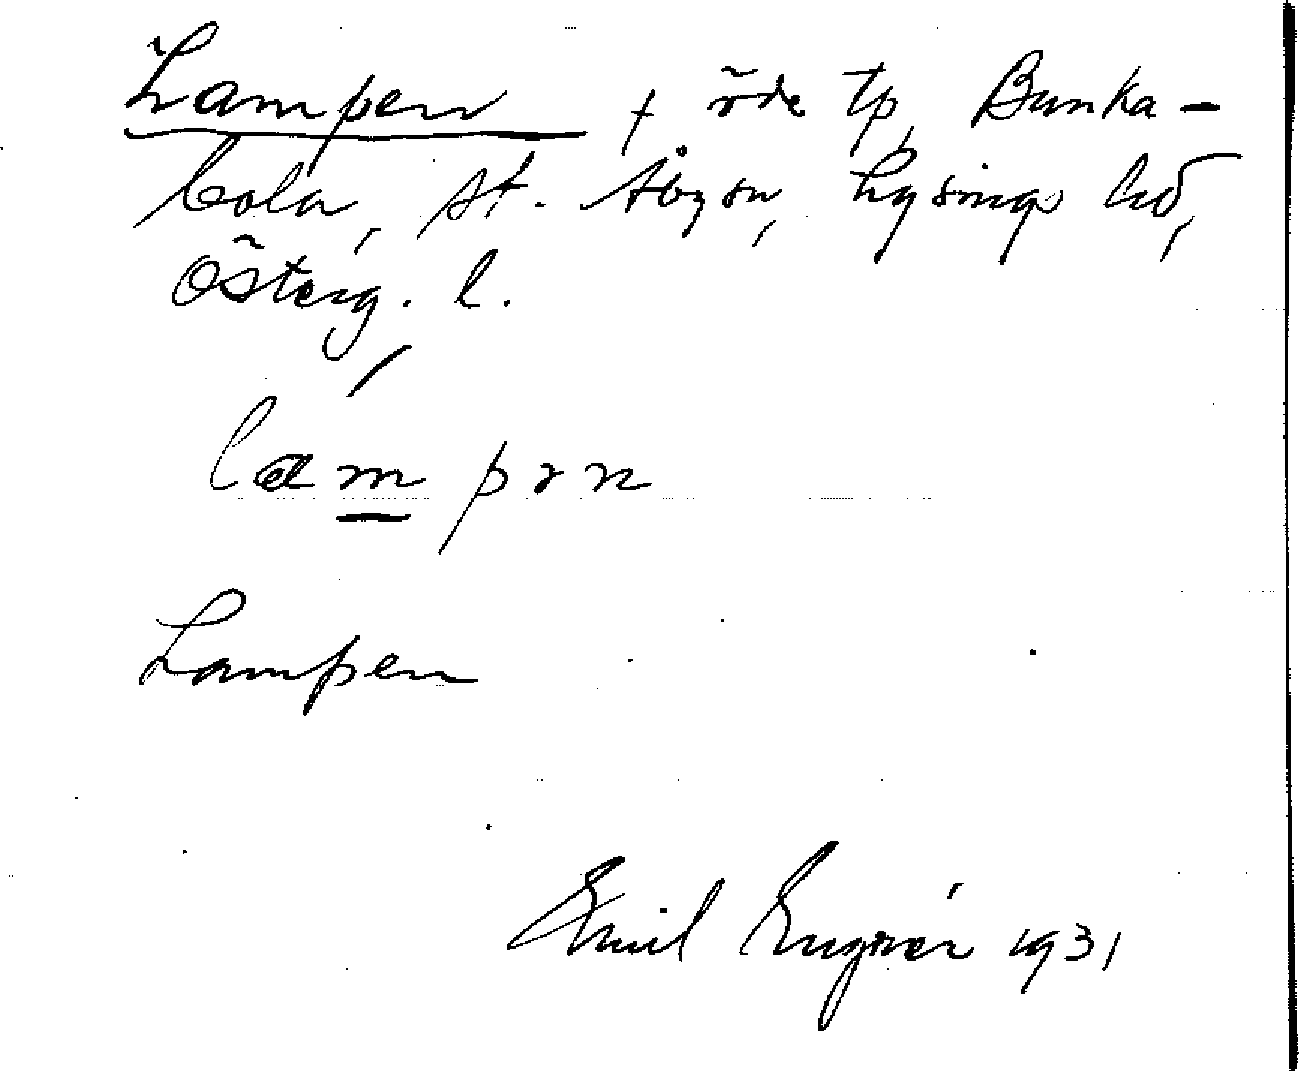 Lampen † öde tp, Bunka-
bola, st. Åbyn, Lysings hd,
Österg. l.
lampən
Lampen
Emil Engnér 1931